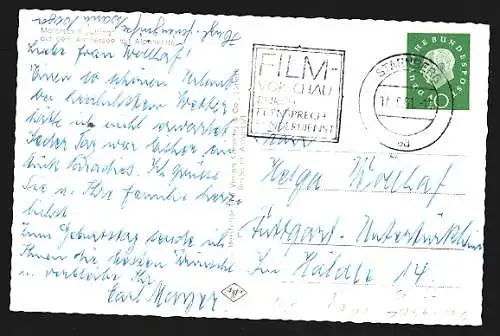 Motorschiff "Utting"
auf dem Ammersee mit Alpenkette
Lieber Frau Wollhaf!
Einen so schönen Urlaub
bei herrlichstem Wetter
hätte ich nicht erwartet.
Jeder Tag war bisher ein
Stück Paradies. Ich grüsse
Sie u. Ihre Familie herz-
lichst
Zum Geburtstag sende ich
Ihnen die besten Wünsche
u. verbleibe Ihr
Karl Mayer
FILM-
VORSCHAU
DURCH
FERNSPRECH-
KUNDENDIENST
STARNBERG
DEUTSCHE BUNDESPOST
10
Frau
Helga Wollhaf
Stuttgart-Untertürkheim
Im Häldle 14
Agfa